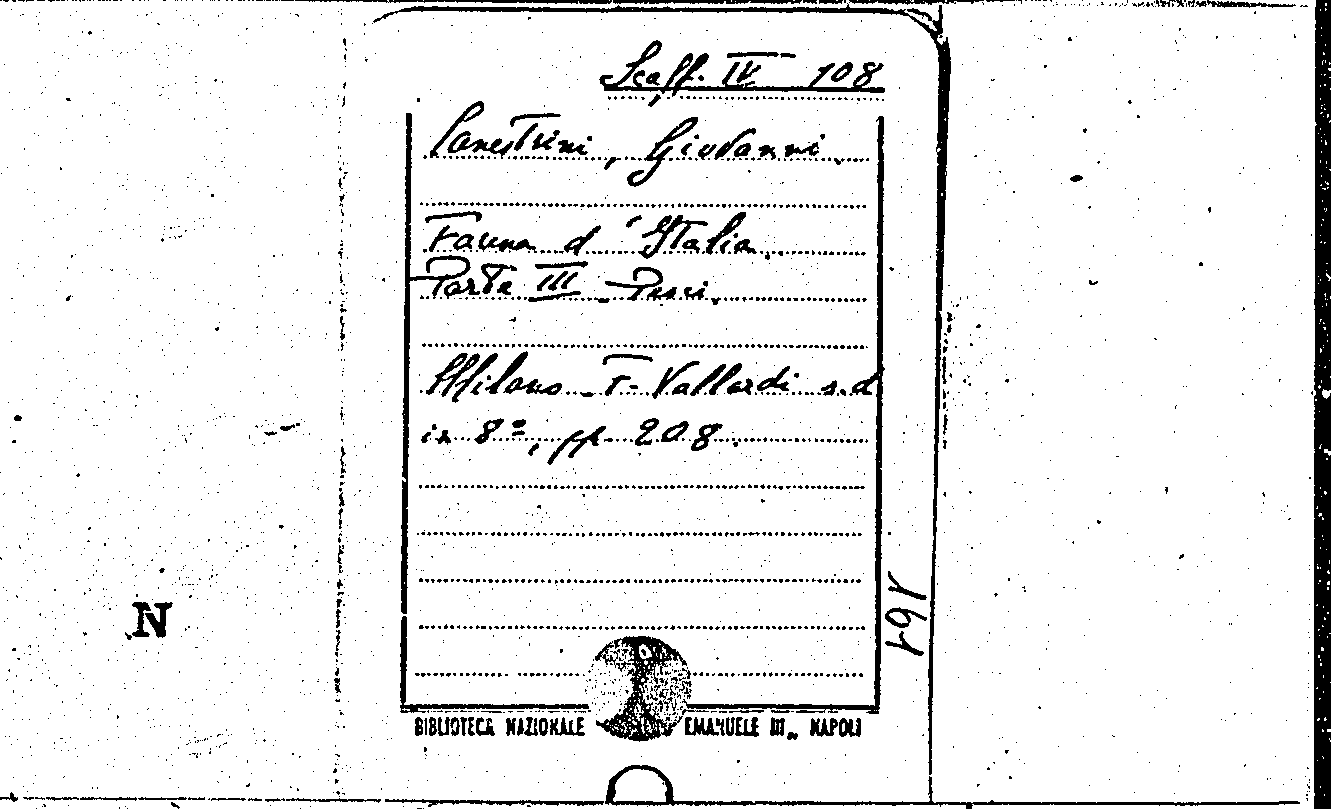 Scaff. IV 108
Canestrini, Giovanni.
Fauna d'Italia.
Parte III - Pesci.
Milano - F. Vallardi s.d
in 8º, pp. 208.
N
BIBLIOTECA NAZIONALE EMANUELE III„ NAPOLI